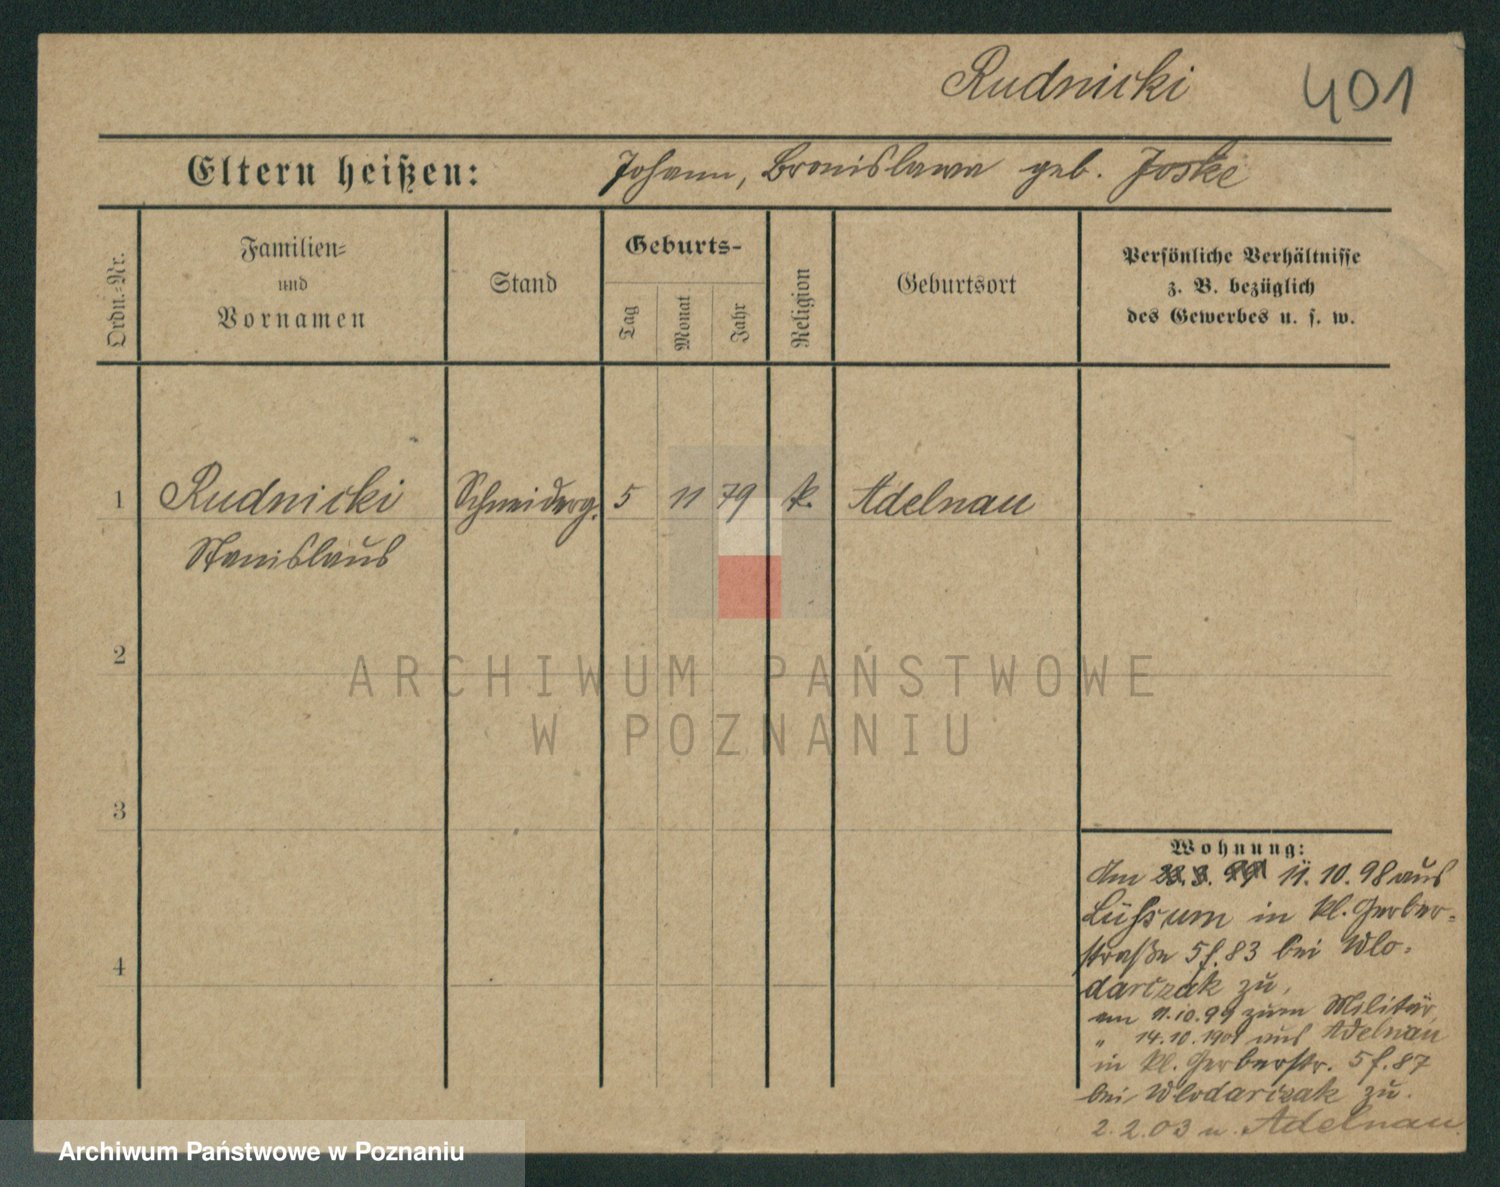 Rudnicki
401
Eltern heißen: Johann, Bronislawa geb. Joske
Ordn.-Nr.
Familien-
und
Vornamen
Stand
Geburts-
Tag
Monat
Jahr
Religion
Geburtsort
Persönliche Verhältnisse
z. B. bezüglich
des Gewerbes u. s. w.
1 Rudnicki Schneiderg. 5 11 79 k. Adelnau
Stanislaus
2
3
4
ARCHIWUM PAŃSTWOWE
W POZNANIU
Wohnung:
Am 11.10.98 aus
in kl. Gerber-
straße 5 f. 83 bei Wlo-
darczak zu,
am 11.10.99 zum Militär
" 14.10.1901 aus Adelnau
in kl. Gerberstr. 5 f. 87
bei Wlodarczak zu.
2.2.03 n. Adelnau
Archiwum Państwowe w Poznaniu